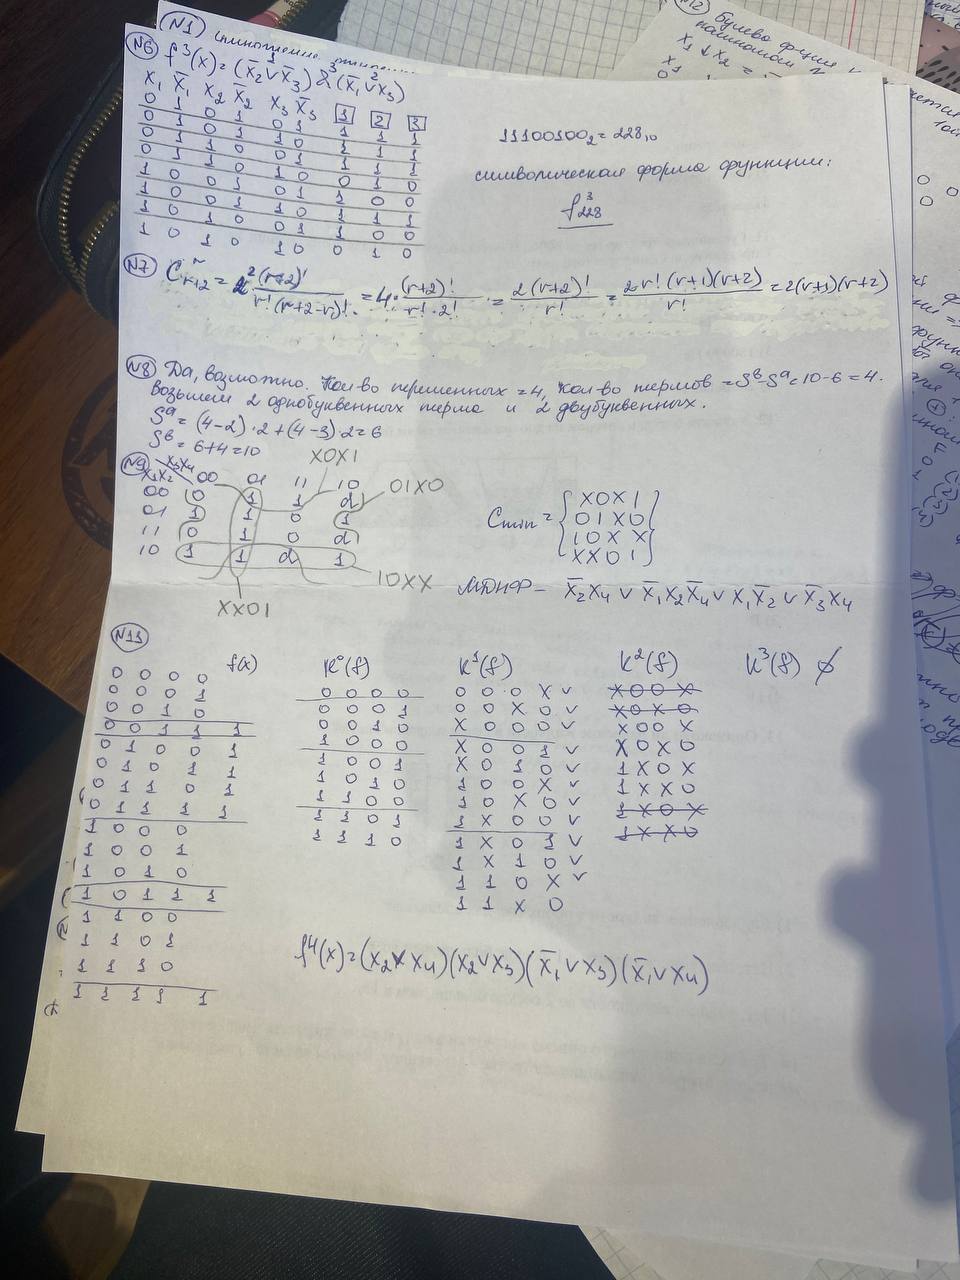 №1
№6 f³(x) = (x̄₂ ∨ x̄₃) & (x̄₁ ∨ x₃)
x₁ x̄₁ x₂ x̄₂ x₃ x̄₃ 1 2 3
0 1 0 1 0 1 1 1 1
0 1 0 1 1 0 1 1 1
0 1 1 0 0 1 1 1 1
0 1 1 0 1 0 0 1 0
1 0 0 1 0 1 1 0 0
1 0 0 1 1 0 1 1 1
1 0 1 0 0 1 1 0 0
1 0 1 0 1 0 0 1 0
11100100₂ = 228₁₀
символическая форма функции:
f³₂₂₈
№7 Cʳᵣ₊₂ = 2² (r+2)! / r!(r+2-r)! = 4 · (r+2)! / r! · 2! = 2(r+2)! / r! = 2r!(r+1)(r+2) / r! = 2(r+1)(r+2)
№8 Да, возможно. Кол-во переменных = 4, кол-во термов = Sᵇ-Sᵃ = 10-6 = 4.
Возьмем 2 однобуквенных терма и 2 двубуквенных.
Sᵃ = (4-2) · 2 + (4-3) · 2 = 6
Sᵇ = 6+4 = 10
№9 x₃x₄
x₁x₂ 00 01 11 10
00 0 1 1 d
01 1 1 0 1
11 0 1 0 d
10 1 1 d 1
X0X1
01X0
10XX
XX01
Cmin = { X0X1
01X0
10XX
XX01 }
МДНФ – x̄₂x₄ ∨ x̄₁x₂x̄₄ ∨ x₁x̄₂ ∨ x̄₃x₄
№11
f(x) K⁰(f) K¹(f) K²(f) K³(f) ∅
0 0 0 0
0 0 0 1
0 0 1 0
0 0 1 1 1
0 1 0 0 1
0 1 0 1 1
0 1 1 0 1
0 1 1 1 1
1 0 0 0
1 0 0 1
1 0 1 0
1 0 1 1 1
1 1 0 0
1 1 0 1
1 1 1 0
1 1 1 1 1
0 0 0 0
0 0 0 1
0 0 1 0
1 0 0 0
1 0 0 1
1 0 1 0
1 1 0 0
1 1 0 1
1 1 1 0
0 0 0 X v
0 0 X 0 v
X 0 0 0 v
X 0 0 1 v
X 0 1 0 v
1 0 0 X v
1 0 X 0 v
1 X 0 0 v
1 X 0 1 v
1 X 1 0 v
1 1 0 X v
1 1 X 0
X 0 0 X
X 0 X 0
X 0 0 X
X 0 X 0
1 X 0 X
1 X X 0
1 X 0 X
1 X X 0
f⁴(x) = (x₂ ∨ x₄)(x₂ ∨ x₃)(x̄₁ ∨ x₃)(x̄₁ ∨ x₄)
№2 Булева функция
x₁ ∨ x₂ =